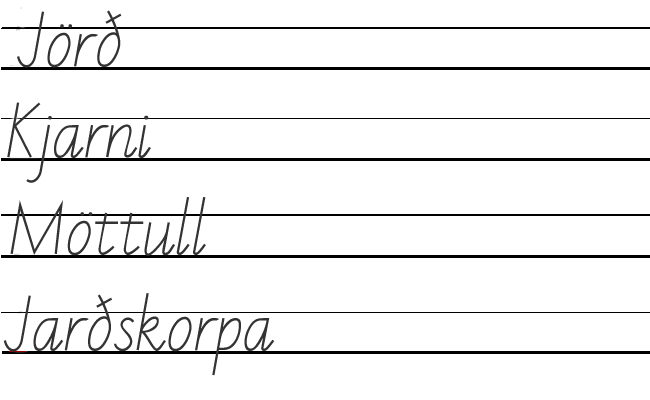 Jörð
Kjarni
Möttull
Jarðskorpa